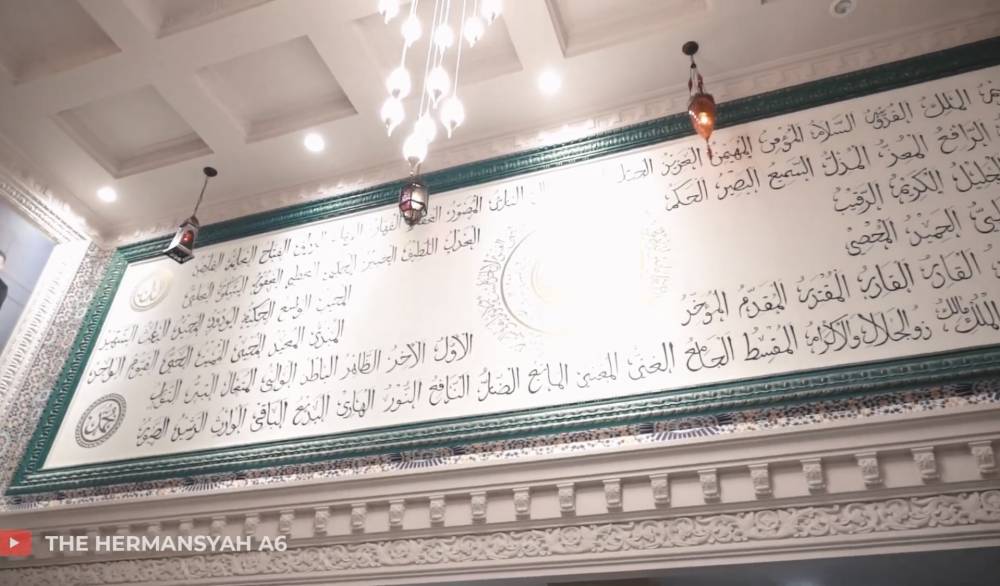 الملك القدوس السلام المؤمن المهيمن العزيز الجبار
البارئ المصور الغفار القهار الوهاب الرزاق الفتاح العليم القابض
الرافع المعز المذل السميع البصير الحكم
العدل اللطيف الخبير الحليم العظيم الغفور الشكور العلي
الجليل الكريم الرقيب
المجيب الواسع الحكيم الودود المجيد الباعث الشهيد
المتين الولي الحميد المحصي
المبدئ المعيد المحيي المميت الحي القيوم الواجد
القادر المقتدر المقدم المؤخر
الاول الآخر الظاهر الباطن الوالي المتعال البر التواب
مالك الملك ذو الجلال والاكرام المقسط الجامع الغني المغني المانع الضار النافع النور الهادي البديع الباقي الوارث الرشيد الصبور
الله
محمد
THE HERMANSYAH A6